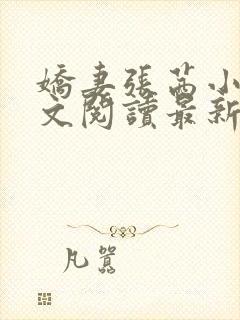 嬌妻張茜小
文閱讀最新
凡囂